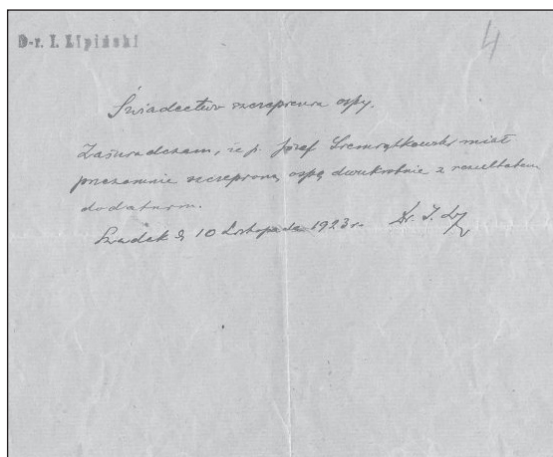 D-r. I. Lipiński
4
Świadectwo szczepienia ospy.
Zaświadczam, że p. Józef miał
przezemnie szczepioną ospę dwukrotnie z rezultatem
dodatnim.
Szadek d. 10 Listopada 1923 r. Dr. I.